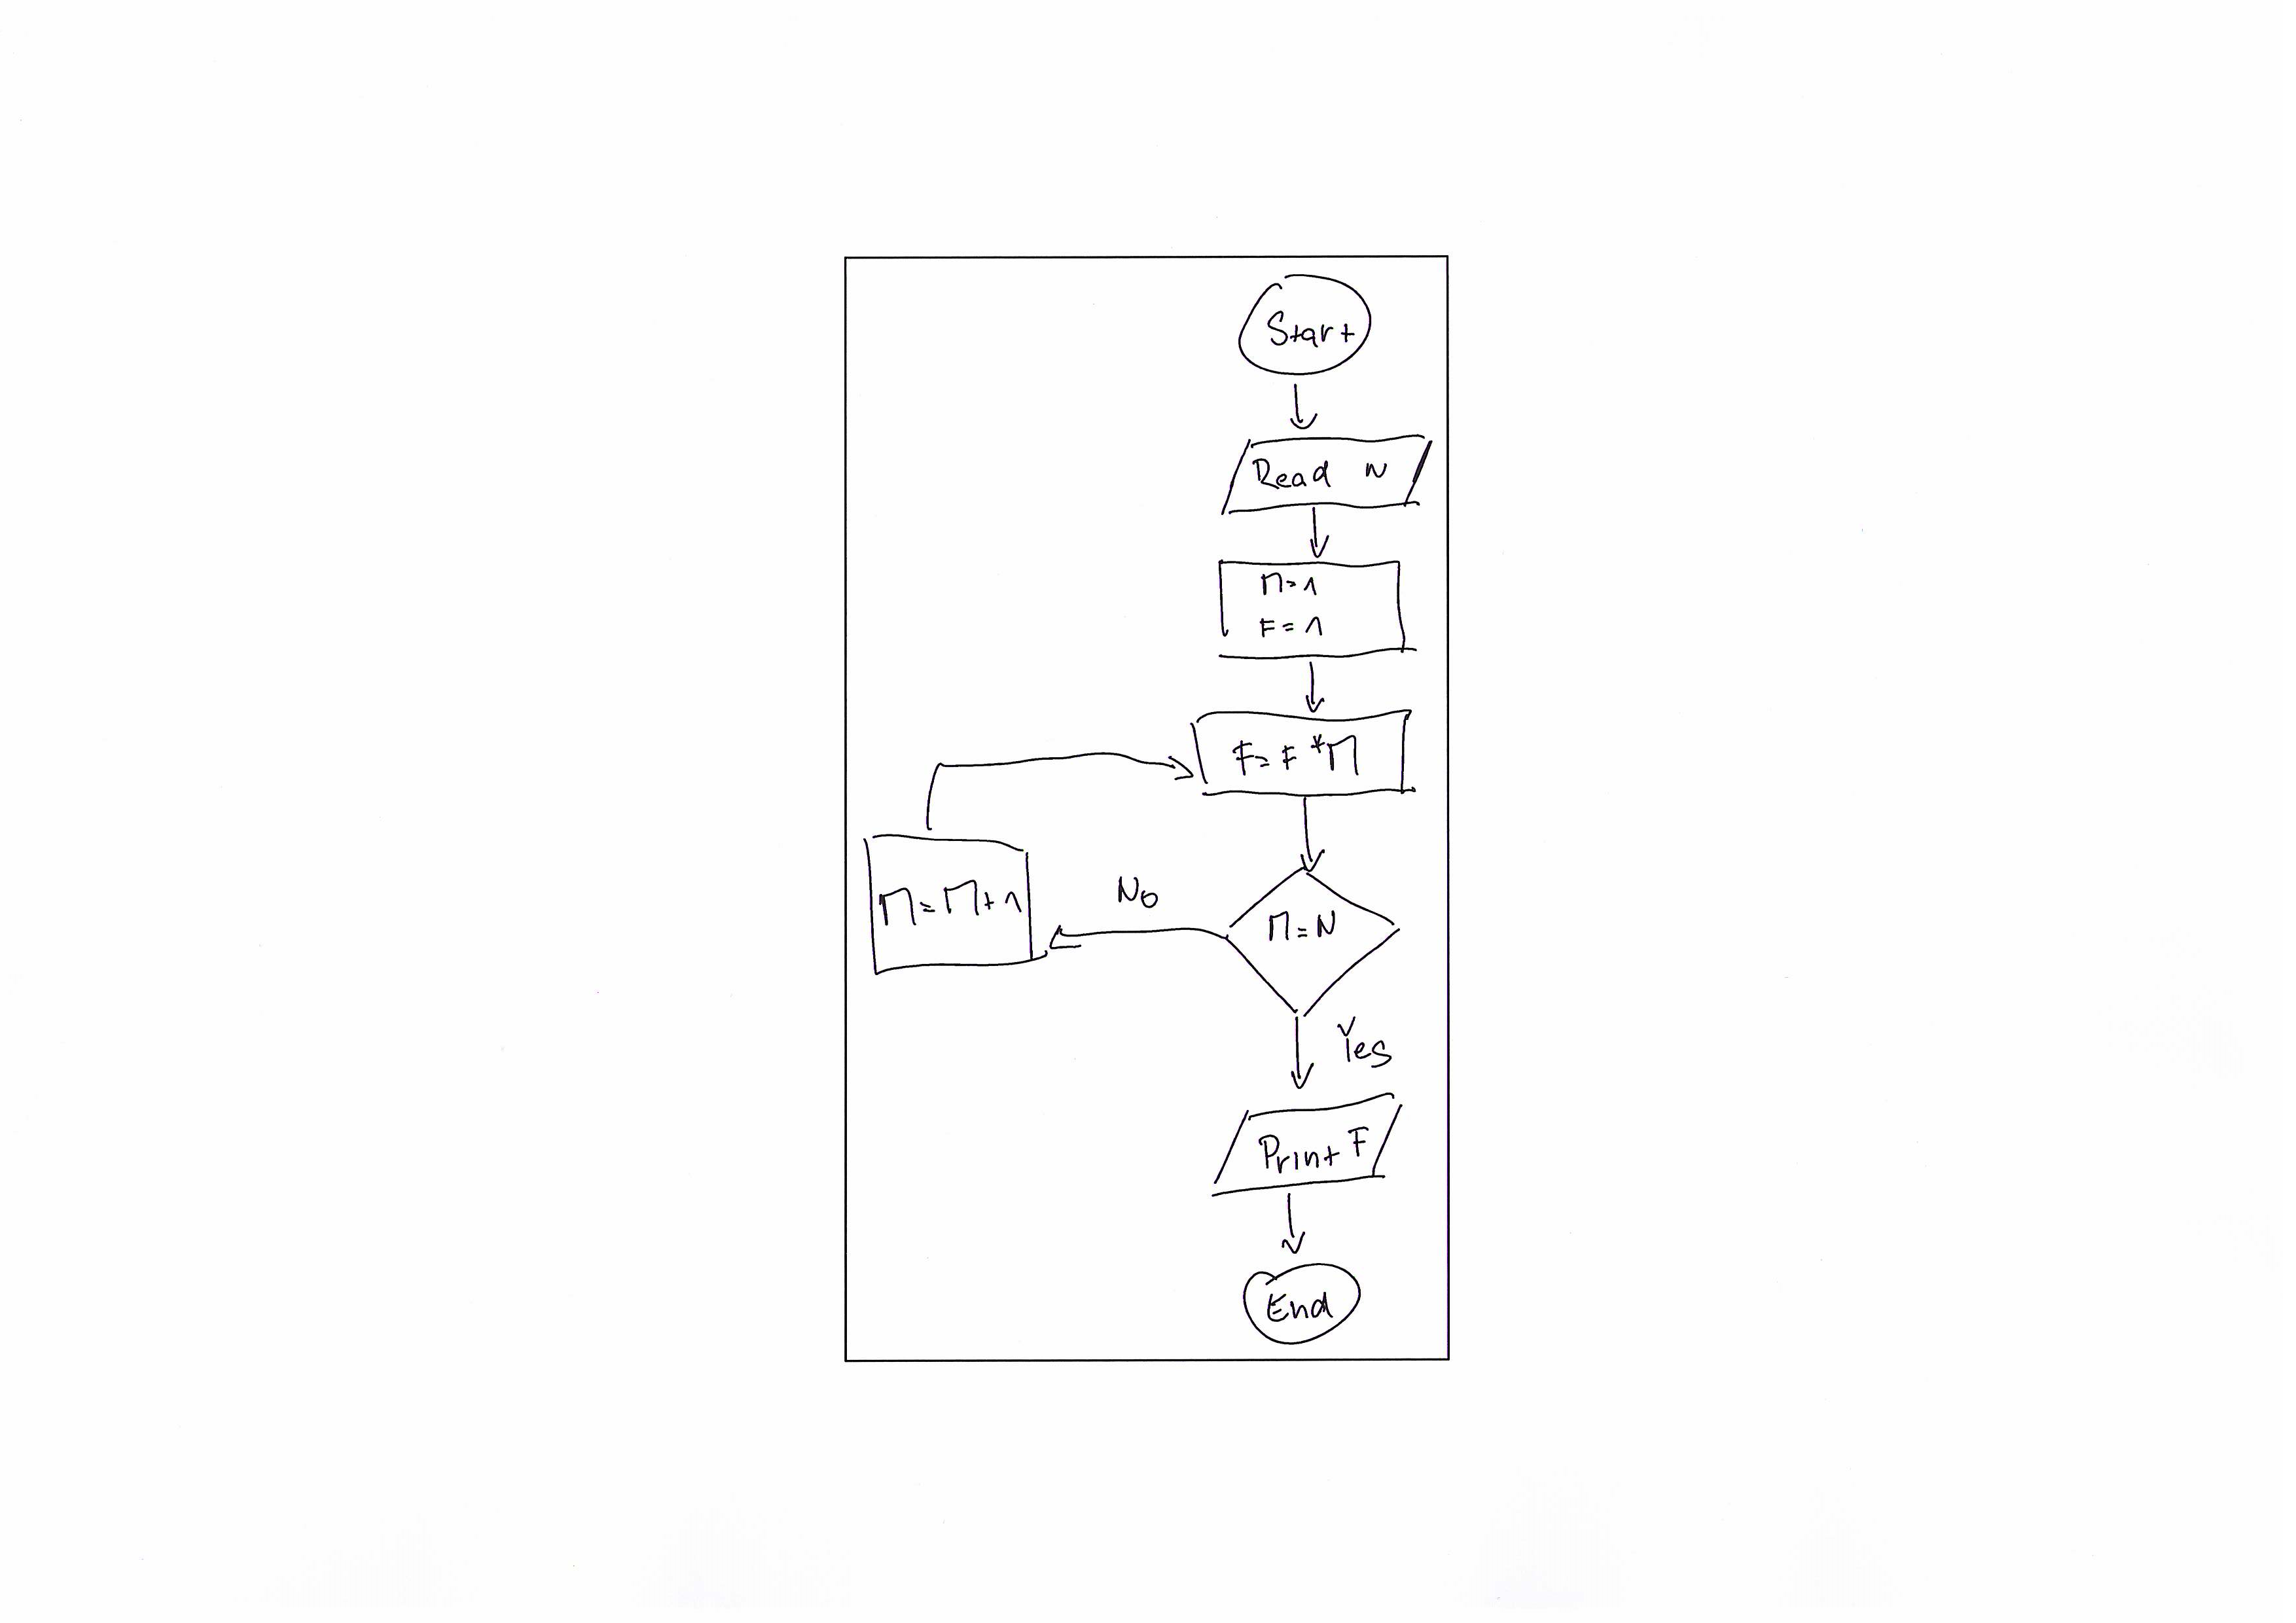 Start
Read N
M=1
F=1
F=F*M
M=M+1
No
M=N
Yes
Print F
End